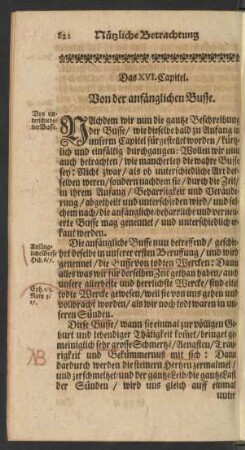 822 Nützliche Betrachtung
Das XVI. Capitel.
Von der anfänglichen Busse.
Von unterschiedener Busse.
NAchdem wir nun die gantze Beschreibung
der Busse / wie dieselbe bald zu Anfang in
unserm Capitel fürgestellet worden / kürtz-
lich und einfältig durchgangen: Wollen wir nun
auch betrachten / wie mancherley die wahre Busse
sey: Nicht zwar / als ob unterschiedliche Art der-
selben weren / sondern nachdem sie / durch die Zeit /
in ihrem Anfang / Beharrligkeit und Verände-
rung / abgetheilt und unterschieden wird / und sel-
chen nach / die anfängliche beharrliche und verneu-
erte Busse mag genennet / und unterschiedlich er-
kant werden.
Die anfängliche Busse nun betreffend / geschie-
het dieselbe in unserer ersten Beruffung / und wird
genennet / die Busse von todten Wercken: Dann
alles was wir für derselben Zeit gethan haben / auch
unsere allerbeste und herrlichste Wercke / sind eitel
todte Wercke gewesen / weil sie von uns geben und
vollbracht worden / als wir noch todt waren in un-
seren Sünden.
Diese Busse / wann sie einmal zur völligen Ge-
burt und lebendiger Thätigkeit keinet / bringet ge-
meiniglich sehr grosse Schmertz / Aengsten / Trau-
rigkeit und Bekümmernuß mit sich: Dann
dardurch werden die steinern Hertzen zermalmet /
und zerschmeltzet und der gantze Leib die gantze Last
der Sünden / wird uns gleich auff einmal
unter